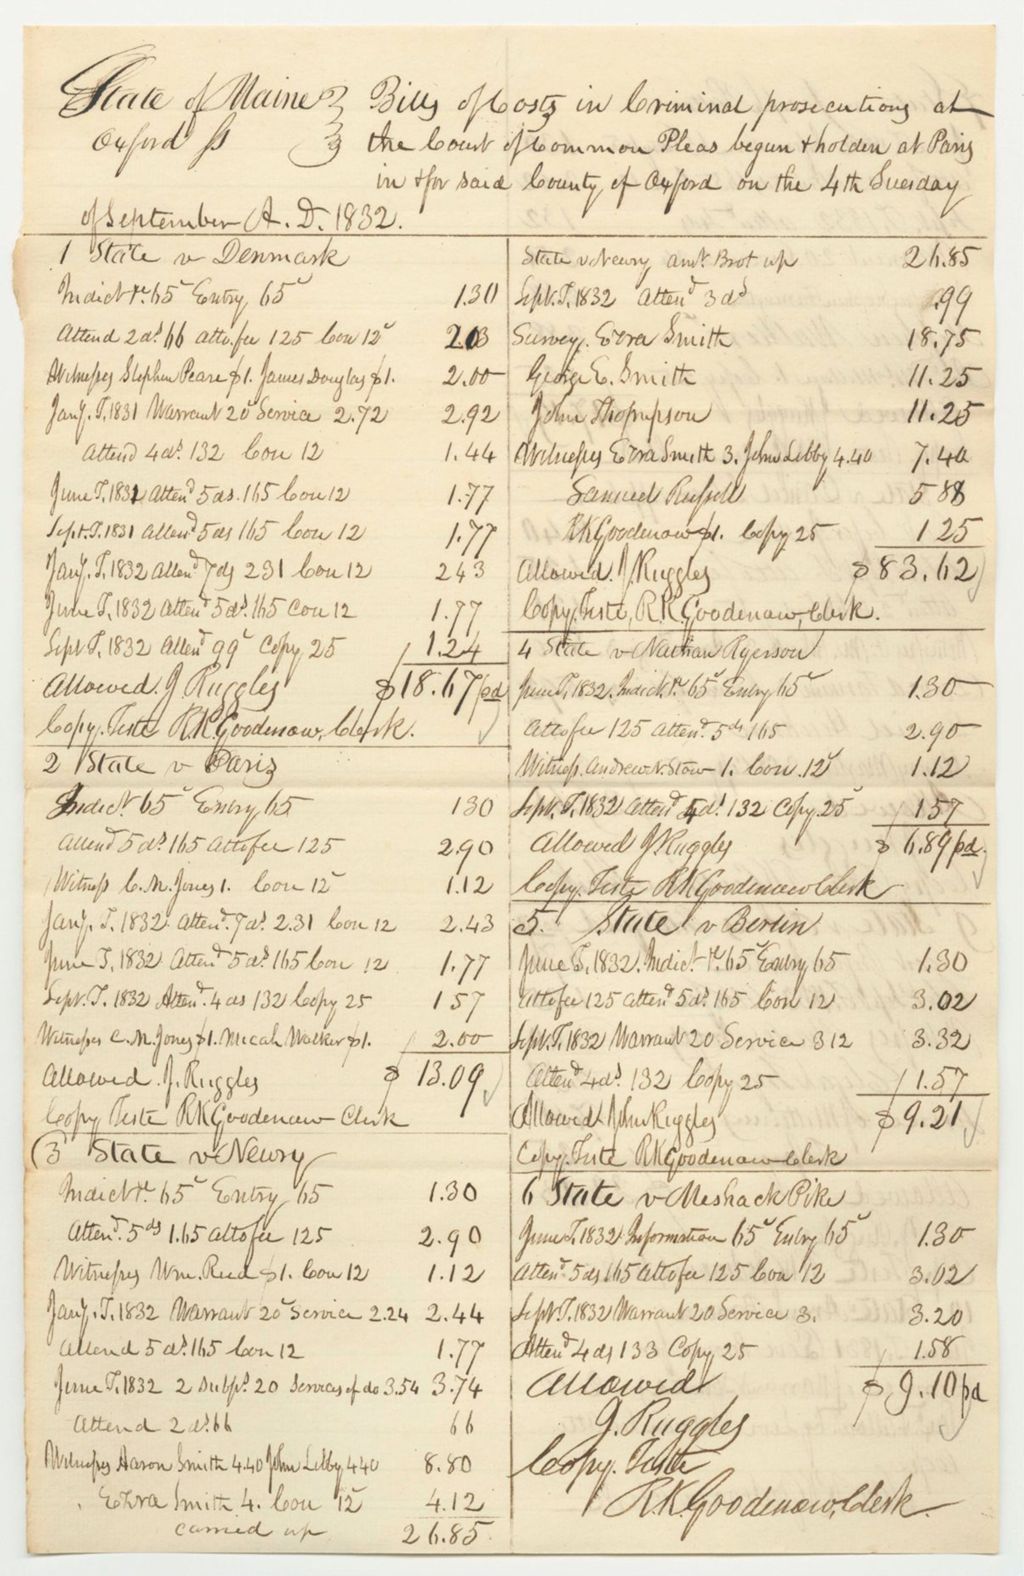 State of Maine
Oxford ss
Bills of Costs in Criminal prosecutions at
the Court of Common Pleas begun & holden at Paris
in & for said County of Oxford on the 4th Tuesday
of September A. D. 1832.
1 State v Denmark
Indictt 65c Entry 65c 1.30
Attend 2ds 66 atto. fee 125 Con 12c 2.03
Witnesses Stephen Pearc $1. James Douglas $1. 2.00
Jany. T, 1831 Warrant 20c Service 2.72 2.92
Attend 4ds 132 Con 12 1.44
June T, 1831 Attend 5ds. 165 Con 12 1.77
Sept. T. 1831 attend 5ds 165 Con 12 1.77
Jany. T, 1832 attend 7ds 231 Con 12 243
June T, 1832 Attend 5ds. 165 Con 12 1.77
Sept T, 1832 Attend 99c Copy 25 1.24
Allowed J Ruggles $18.67 pd
Copy. Teste R K Goodenow, Clerk.
2 State v Paris
Indict 65c Entry 65 130
attend 5ds 165 atto fee 125 2.90
Witness C. M. Jones 1. Con 12c 1.12
Jany. T, 1832. atten. 7ds. 2.31 Con 12 2.43
June T, 1832 Attend 5ds. 165 Con 12 1.77
Sept. T. 1832 Attend. 4 ds 132 Copy 25 157
Witnesses C. M. Jones $1. Micah Walker $1. 2.00
Allowed. J. Ruggles $ 13.09
Copy Teste R K Goodenow Clerk
3 State v Newry
Indictt 65c Entry 65 1.30
Attend. 5ds 1.65 atto fee 125 2.90
Witnesses Wm. Reed $1. Con 12 1.12
Jany. T. 1832 Warrant 20c Service 2.24 2.44
attend 5 ds. 165 Con 12 1.77
June T, 1832 2 Subps. 20 Services of do 3.54 3.74
Attend 2 ds. 66 66
Witnesses Aaron Smith 4.40 John Libby 440 8.80
Ezra Smith 4. Con 12c 4.12
carried up 26.85
State v Newry amt. Brot up 26.85
Sept. T. 1832 Attend 3 ds .99
Survey. Ezra Smith 18.75
George E. Smith 11.25
John Thompson 11.25
Witnesses Ezra Smith 3. John Libby 4.40 7.40
Samuel Russell 5 88
R K Goodenow $1. Copy 25 1 25
Allowed. J. Ruggles $83.62
Copy. Teste, R. K. Goodenow, Clerk.
4 State v Nathan Ryerson
June T, 1832. Indictt 65c Entry 65c 1.30
Atto fee 125 attend. 5ds 165 2.90
Witness. Andrew N. Stow 1. Con. 12c 1.12
Sept. T. 1832 attend 4d. 132 Copy. 25c 157
Allowed J Ruggles $ 6.89 pd.
Copy. Teste R K Goodenow Clerk
5. State v Berlin
June T, 1832. Indictt. 65c Entry 65 1.30
Atto fee 125 attend 5ds. 165 Con 12 3.02
Sept. T, 1832 Warrant 20 Service 3 12 3.32
Attend 4ds. 132 Copy 25 1.57
Allowed John Ruggles $ 9.21
Copy. Teste R K Goodenow Clerk
6 State v Meshack Pike
June T, 1832 Information 65c Entry 65c 1.30
Attend. 5 ds 165 Atto fee 125 Con 12 3.02
Sept. T. 1832 Warrant 20 Service 3. 3.20
Attend 4 ds 133 Copy 25 1.58
Allowed $ 9.10 pd
J. Ruggles
Copy. Teste
R. K. Goodenow, Clerk